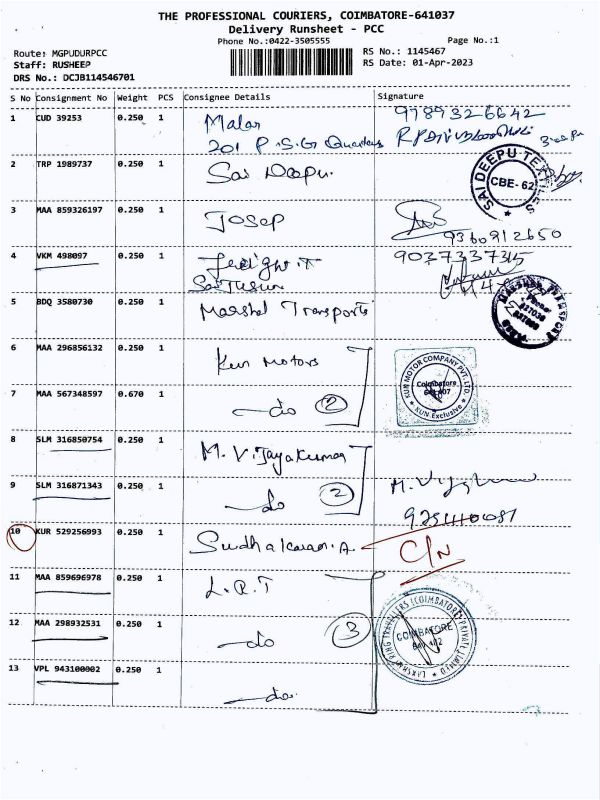 THE PROFESSIONAL COURIERS, COIMBATORE-641037
Delivery Runsheet - PCC
Phone No.:0422-3505555 Page No.:1
Route: MGPUDURPCC RS No.: 1145467
Staff: RUSHEEP RS Date: 01-Apr-2023
DRS No.: DCJB114546701
S No Consignment No Weight PCS Consignee Details Signature
1 CUD 39253 0.250 1 Malar 9789326642
201 P.S.G Quarters
2 TRP 1989737 0.250 1 Sai Deepu.
SAI DEEPU TEXTILES
CBE- 62
3 MAA 859326197 0.250 1 Josep
9360912650
4 VKM 498097 0.250 1 9037337315
5 BDQ 3580730 0.250 1 Marshal Transports
6 MAA 296856132 0.250 1 Kun Motors
KUN MOTOR COMPANY PVT. LTD.
Coimbatore
KUN Exclusive
7 MAA 567348597 0.670 1 do 2
8 SLM 316850754 0.250 1 M. Vijayakumar
9 SLM 316871343 0.250 1 do 2
10 KUR 529256993 0.250 1 Sudhakaran.A C/N
11 MAA 859696978 0.250 1 L.R.T
12 MAA 298932531 0.250 1 do 3
COIMBATORE
13 VPL 943100002 0.250 1 do